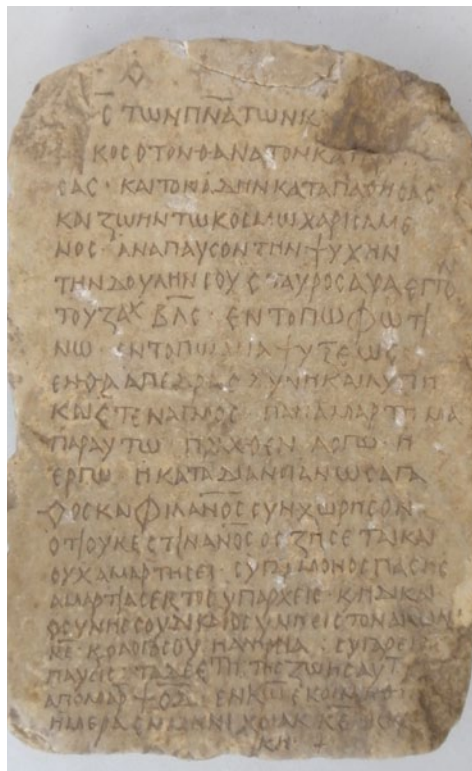 Ο
ΘϹ ΤΩΝ ΠΝΑΤΩΝ Κ
ΚΟϹ Ο ΤΟΝ ΘΑΝΑΤΟΝ ΚΑΤ
ϹΑϹ · ΚΑΙ ΤΟΝ ΑΔΗΝ ΚΑΤΑΠΑΤΗϹΑϹ
ΚΑΙ ΖΩΗΝ ΤΩ ΚΟϹΜΩ ΧΑΡΙϹΑΜΕ
ΝΟϹ · ΑΝΑΠΑΥϹΟΝ ΤΗΝ ΨΥΧΗΝ
ΤΗΝ ΔΟΥΛΗΝ ϹΟΥ ϹΤΑΥΡΟϹΑΥΑ
ΤΟΥ ΖΑΧ ΒΛϹ · ΕΝ ΤΟΠΩ ΦΩΤΙ
ΝΩ · ΕΝ ΤΟΠΩ ΑΝΑΨΥΞΕΩϹ
ΕΝΘΑ ΑΠΕΔΡΑϹ ΟΔΥΝΗ ΚΑΙ ΛΥΠΗ
ΚΑΙ ϹΤΕΝΑΓΜΟϹ · ΠΑΝ ΑΜΑΡΤΗΜΑ
ΠΑΡ ΑΥΤΩ ΠΡΑΧΘΕΝ ΛΟΓΩ · Η
ΕΡΓΩ · Η ΚΑΤΑ ΔΙΑΝΟΙΑΝ ΩϹ ΑΓΑ
ΘΟϹ ΚΑΙ ΦΙΛΑΝΟϹ ϹΥΝΧΩΡΗϹΟΝ
ΟΤΙ ΟΥΚ ΕϹΤΙΝ ΑΝΟϹ ΟϹ ΖΗϹΕΤΑΙ ΚΑΙ
ΟΥΧ ΑΜΑΡΤΗϹΕΙ · ϹΥ ΓΑΡ ΜΟΝΟϹ ΠΑϹΗϹ
ΑΜΑΡΤΙΑϹ ΕΚΤΟϹ ΥΠΑΡΧΕΙϹ · Κ Η ΔΙΚΑΙ
ΟϹΥΝΗ ϹΟΥ ΔΙΚΑΙΟϹΥΝΗ ΕΙϹ ΤΟΝ ΑΙΩΝ
ΚΕ · Κ Ο ΛΟΓΟϹ ϹΟΥ Η ΑΛΗΘΕΙΑ · ϹΥ ΓΑΡ ΕΙ
ΠΑΥϹΙϹ · ΤΑ ΔΕ ΕΤΗ ΤΗϹ ΖΩΗϹ ΑΥΤ
ΑΠΟ ΜΑΡ
ΗΜΕΡΑ ΕΝ ΜΗΝΙ ΧΟΙΑΚ ΚΕ
ΚΗ · +